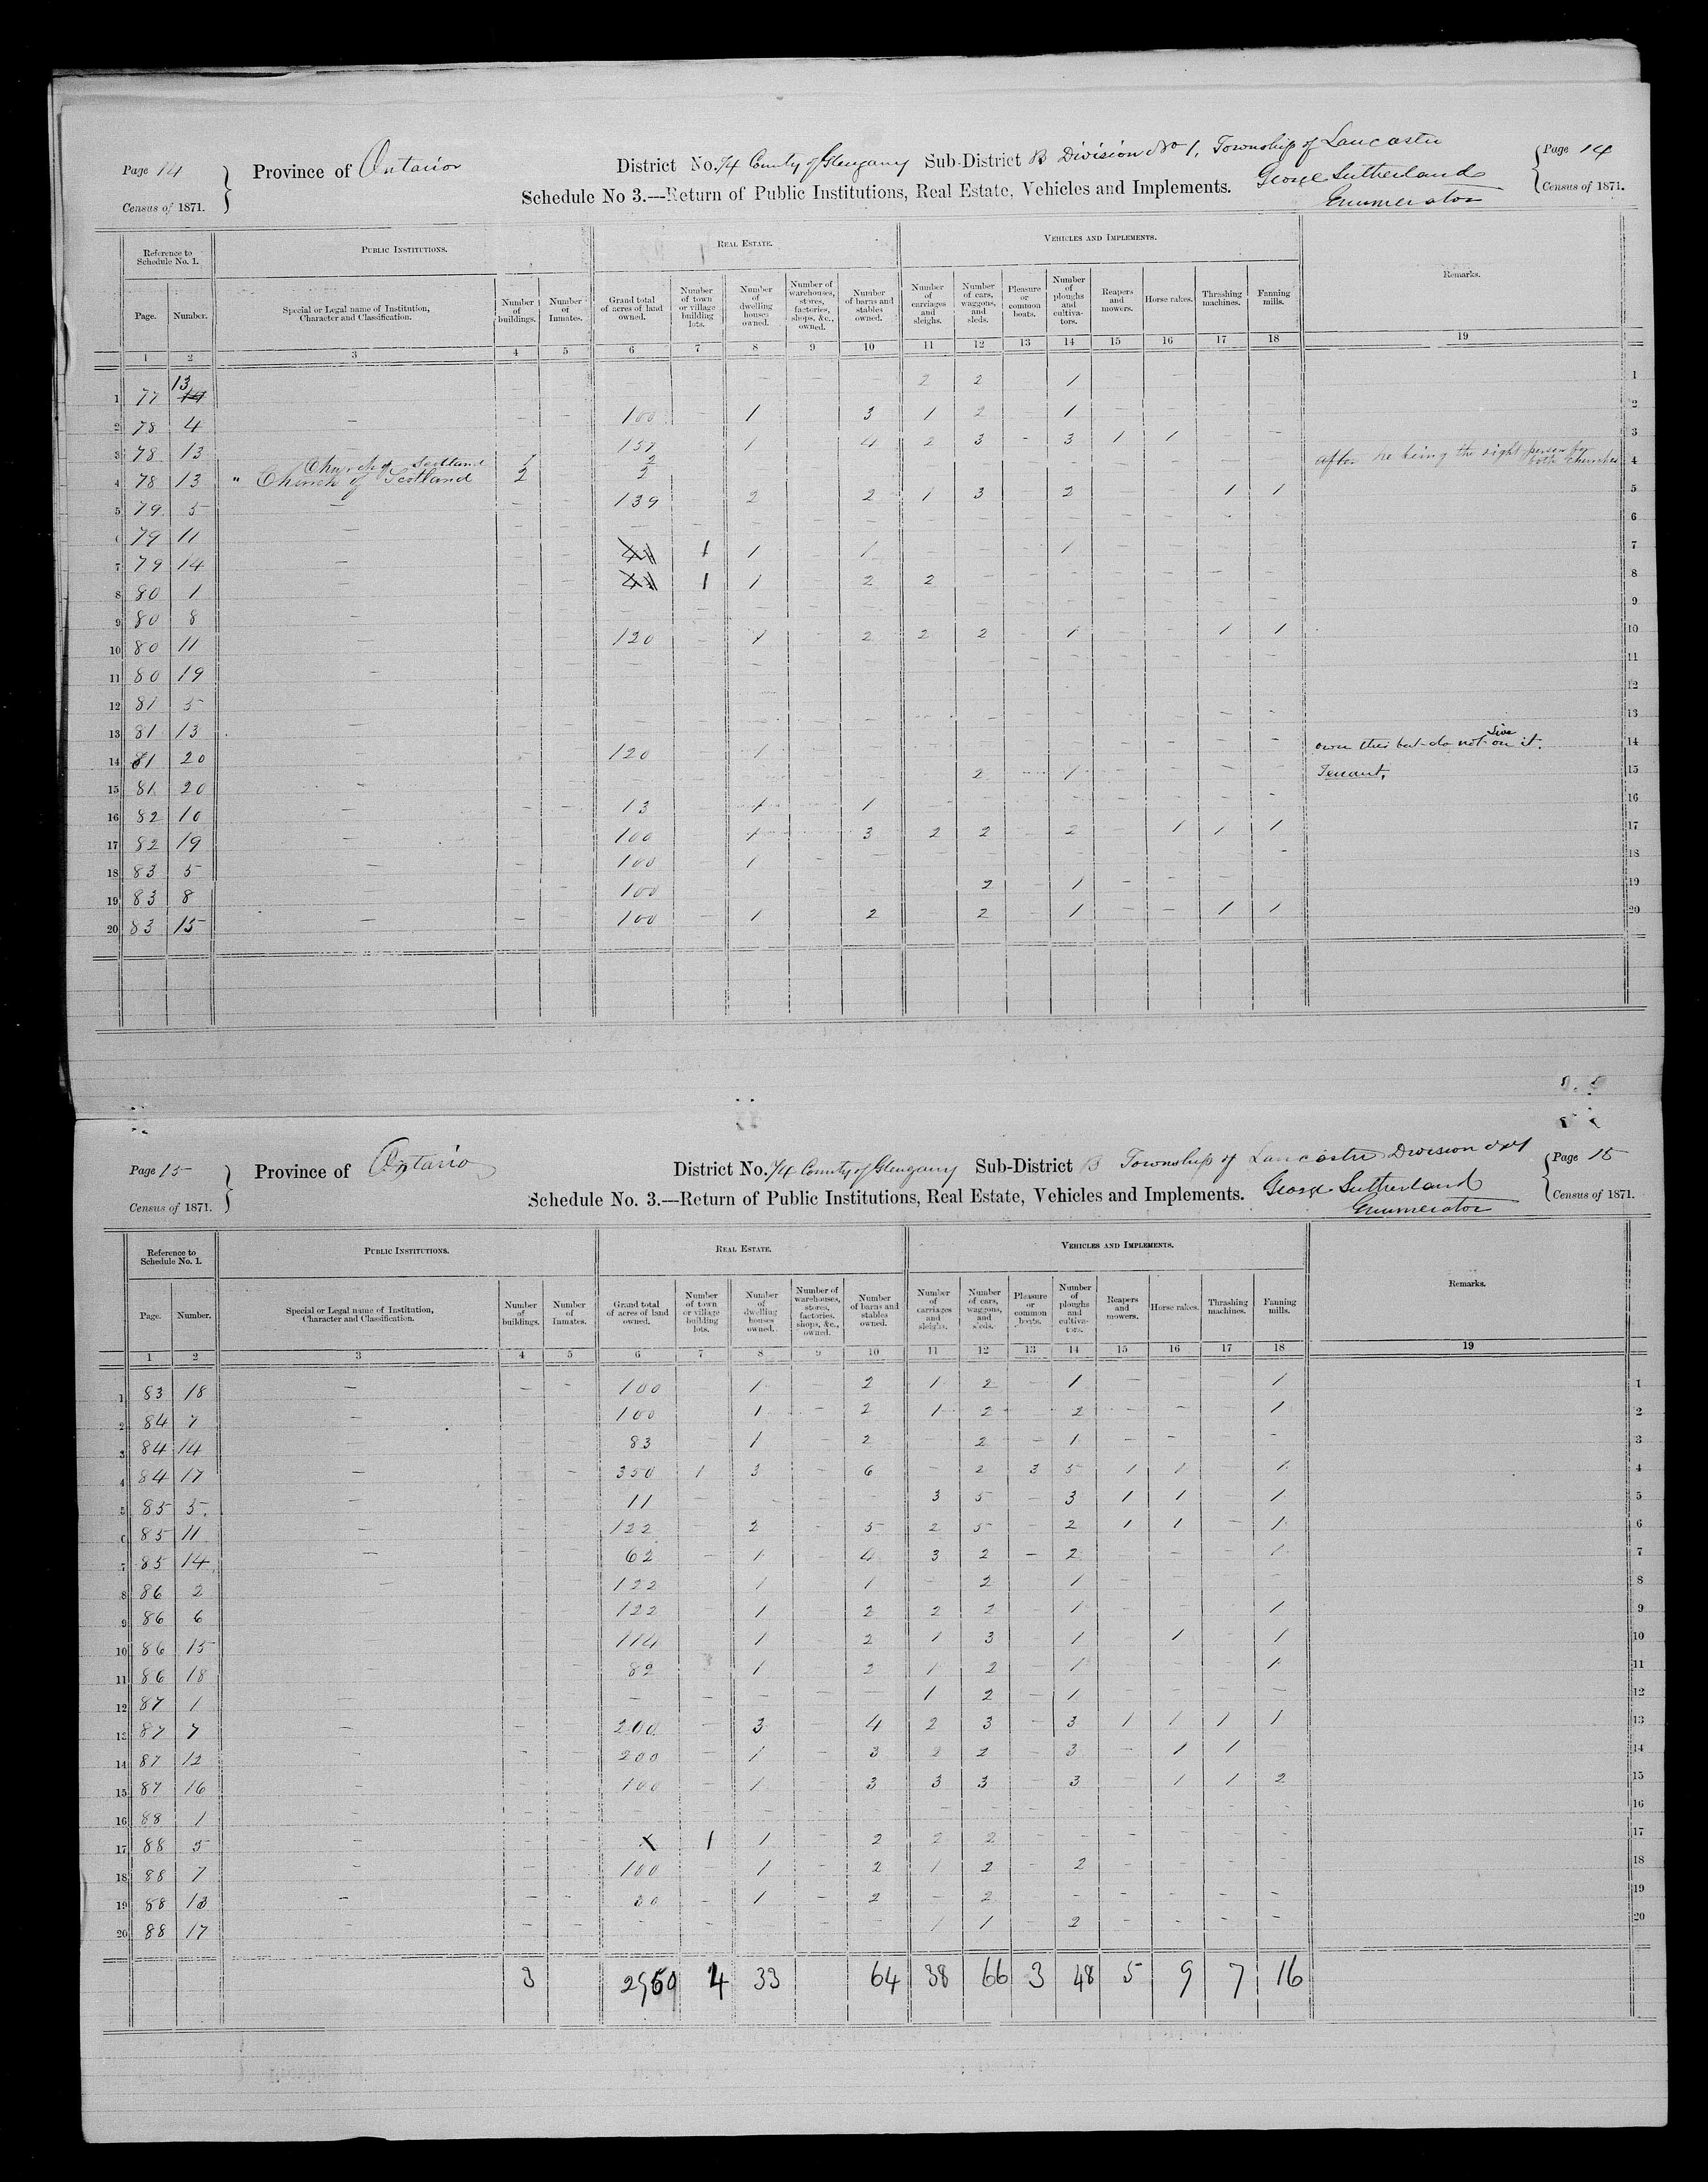 Page 14
Census of 1871.
Province of Ontario
District No. 74 County of Glengarry Sub-District B Division No 1, Township of Lancaster
Schedule No 3.—Return of Public Institutions, Real Estate, Vehicles and Implements.
George Sutherland
Enumerator
Page 14
Census of 1871.
Reference to Schedule No. 1.
PUBLIC INSTITUTIONS.
REAL ESTATE.
VEHICLES AND IMPLEMENTS.
Remarks.
Page. Number. Special or Legal name of Institution, Character and Classification. Number of buildings. Number of Inmates. Grand total of acres of land owned. Number of town or village building lots. Number of dwelling houses owned. Number of warehouses, stores, factories, shops, &c., owned. Number of barns and stables owned. Number of carriages and sleighs. Number of cars, waggons, and sleds. Pleasure or common boats. Number of ploughs and cultivators. Reapers and mowers. Horse rakes. Thrashing machines. Fanning mills.
1 2 3 4 5 6 7 8 9 10 11 12 13 14 15 16 17 18 19
1 77 13 2 2 1 1
2 78 4 100 1 3 1 2 1 2
3 78 13 Church of Scotland 1 2 4 2 3 3 1 1 3
4 78 13 " Church of Scotland 2 2 he being the right person by both churches 4
5 79 5 139 2 2 1 3 2 1 1 5
6 79 11 6
7 79 14 1 1 1 1 7
8 80 1 1 1 2 2 8
9 80 8 9
10 80 11 120 1 2 2 2 1 1 1 10
11 80 19 11
12 81 5 12
13 81 13 13
14 81 20 120 1 own this but do not live on it. 14
15 81 20 2 1 Tenant. 15
16 82 10 13 1 1 16
17 82 19 100 1 3 2 2 2 1 1 1 17
18 83 5 100 1 18
19 83 8 100 2 1 19
20 83 15 100 1 2 2 1 1 1 20
Page 15
Census of 1871.
Province of Ontario
District No. 74 County of Glengarry Sub-District B Township of Lancaster Division No 1
Schedule No. 3.—Return of Public Institutions, Real Estate, Vehicles and Implements.
George Sutherland
Enumerator
Page 15
Census of 1871.
Reference to Schedule No. 1.
PUBLIC INSTITUTIONS.
REAL ESTATE.
VEHICLES AND IMPLEMENTS.
Remarks.
Page. Number. Special or Legal name of Institution, Character and Classification. Number of buildings. Number of Inmates. Grand total of acres of land owned. Number of town or village building lots. Number of dwelling houses owned. Number of warehouses, stores, factories, shops, &c., owned. Number of barns and stables owned. Number of carriages and sleighs. Number of cars, waggons, and sleds. Pleasure or common boats. Number of ploughs and cultivators. Reapers and mowers. Horse rakes. Thrashing machines. Fanning mills.
1 2 3 4 5 6 7 8 9 10 11 12 13 14 15 16 17 18 19
1 83 18 100 1 2 1 2 1 1 1
2 84 7 100 1 2 1 2 2 1 2
3 84 14 83 1 2 2 1 3
4 84 17 350 1 3 6 2 3 5 1 1 1 4
5 85 5 11 3 5 3 1 1 1 5
6 85 11 122 2 5 2 5 2 1 1 1 6
7 85 14 62 1 4 3 2 2 1 7
8 86 2 122 1 1 2 1 8
9 86 6 122 1 2 2 2 1 1 9
10 86 15 114 1 2 1 3 1 1 1 10
11 86 18 82 1 2 1 2 1 1 11
12 87 1 1 2 1 12
13 87 7 200 3 4 2 3 3 1 1 1 1 13
14 87 12 200 1 3 2 2 3 1 1 14
15 87 16 100 1 3 3 3 3 1 1 2 15
16 88 1 16
17 88 5 1 1 2 2 2 17
18 88 7 100 1 2 1 2 2 18
19 88 13 1 2 2 19
20 88 17 1 1 2 20
3 4 33 64 38 66 3 48 5 9 7 16